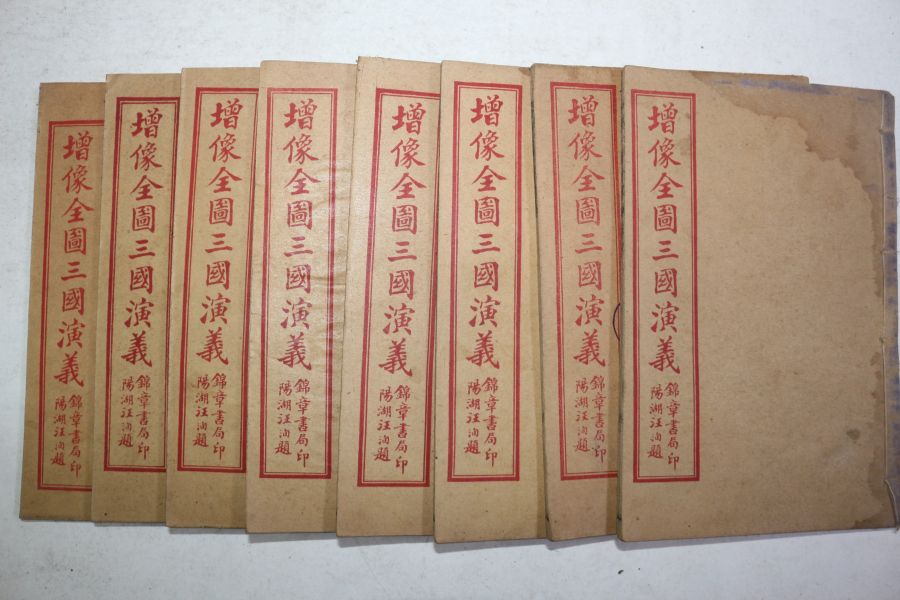 增像全圖三國演義
錦章書局印
陽湖汪洵題
增像全圖三國演義
錦章書局印
陽湖汪洵題
增像全圖三國演義
錦章書局印
陽湖汪洵題
增像全圖三國演義
錦章書局印
陽湖汪洵題
增像全圖三國演義
錦章書局印
陽湖汪洵題
增像全圖三國演義
錦章書局印
陽湖汪洵題
增像全圖三國演義
錦章書局印
陽湖汪洵題
增像全圖三國演義
錦章書局印
陽湖汪洵題